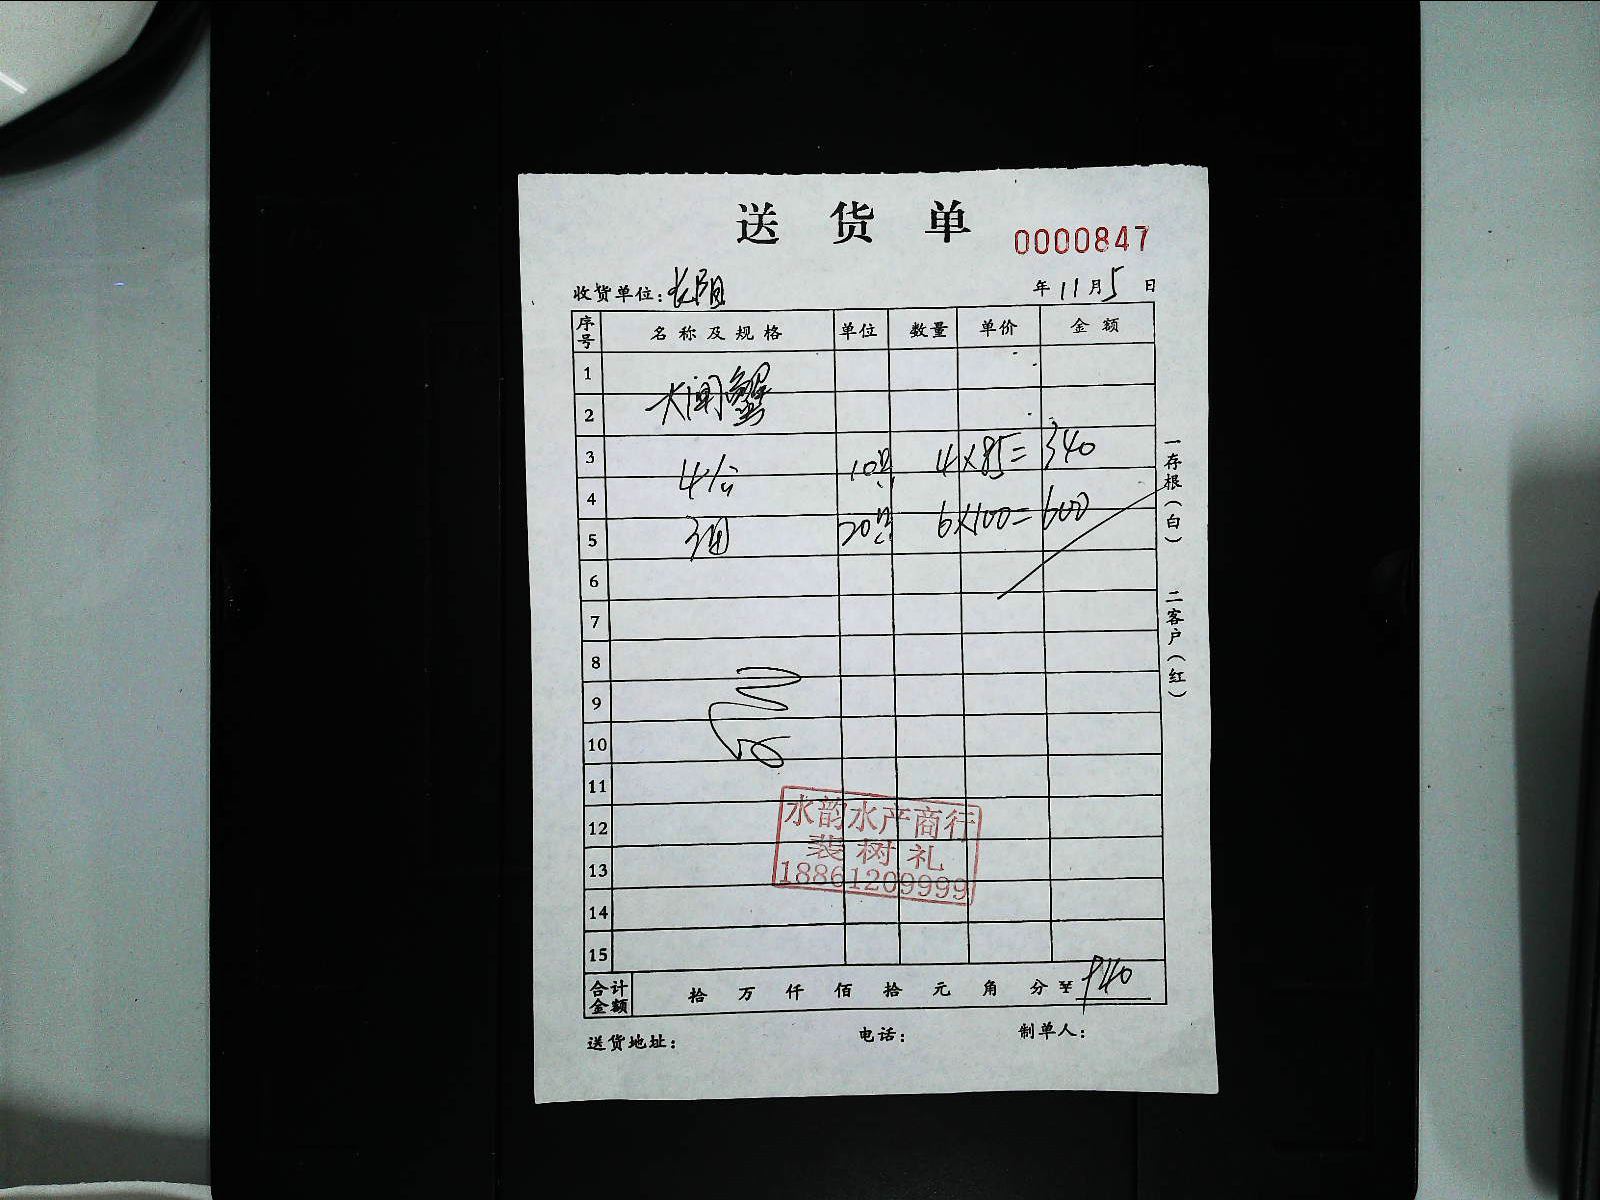 送货单
0000847
收货单位：长阳 年11月5日
序号 名称及规格 单位 数量 单价 金额
1
大闸蟹
2
3 4公 10只 4×85=340
4
5 3母 20只 6×100=600
6
7
8
9
10
11
12
13
14
15
水韵水产商行
裴树礼
18861209999
合计金额 拾 万 仟 佰 拾 元 角 分 ¥940
送货地址： 电话： 制单人：
一存根（白） 二客户（红）